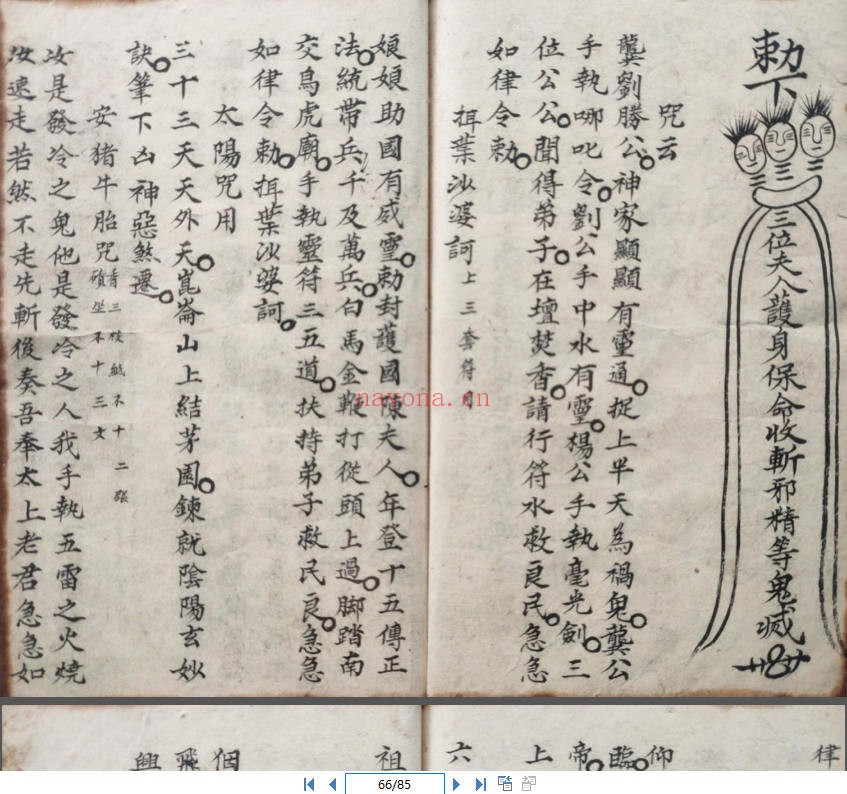 勅下
三位夫人護身保命收斬邪精等鬼滅
咒云
龔劉勝公神家顯顯有靈通捉上半天為禍鬼龔公
手執哪叱令劉公手中水有靈楊公手執毫光劍三
位公公聞得弟子在壇焚香請行符水救良民急急
如律令勅
揖葉沙婆訶上三套符用
娘娘助國有威靈勅封護國陳夫人年登十五傳正
法統帶兵千及萬兵白馬金鞭打從頭上過脚踏南
交鳥虎廟手執靈符三五道扶持弟子救民良急急
如律令勅揖葉沙婆訶
太陽咒用
三十三天天外天崑崙山上結茅園鍊就陰陽玄妙
訣筆下凶神惡煞遷
安猪牛胎咒
三枝
不十二張
坐不十三文
汝是發冷之鬼他是發冷之人我手執五雷之火燒
汝速走若然不走先斬後奏吾奉太上老君急急如
律
仰
臨
帝
上
六
祖
個
飛
興
nayona.cn
66/85